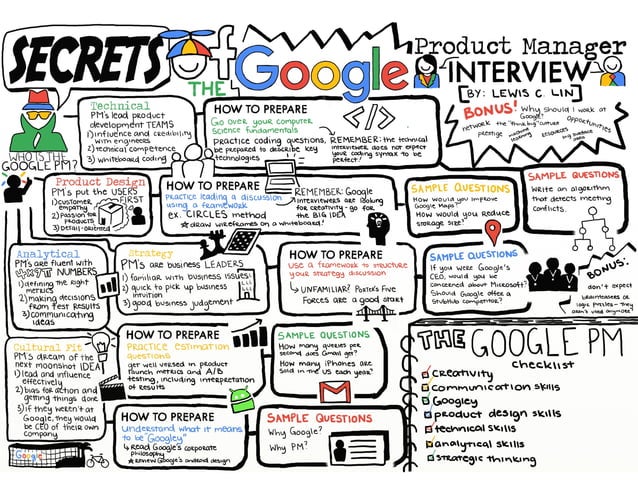 SECRETS of
THE Google
Product Manager
INTERVIEW
BY: LEWIS C. LIN
BONUS! Why should I work at
Google?
network the "think big" culture opportunities
prestige machine learning resources big audience
WHO IS THE
GOOGLE PM?
Technical
PM's lead product
development TEAMS
1) influence and credibility
with engineers
2) technical competence
3) whiteboard coding
HOW TO PREPARE
Go over your computer
science fundamentals
practice coding questions,
be prepared to describe key
technologies
</>
REMEMBER: the technical
interviewer does not expect
your coding syntax to be
perfect!
SAMPLE QUESTIONS
Write an algorithm
that detects meeting
conflicts.
Product Design
PM's put the USERS
FIRST
1) customer
empathy
2) Passion for
products
3) Detail-oriented
HOW TO PREPARE
Practice leading a discussion
using a framework
ex. CIRCLES method
★ draw wireframes on a whiteboard!
REMEMBER: Google
interviewers are looking
for creativity - go for
the BIG IDEA
SAMPLE QUESTIONS
How would you improve
Google Maps?
How would you reduce
storage size?
Analytical
PMs are fluent with
NUMBERS
1) defining the right
metrics
2) making decisions
from test results
3) communicating
ideas
Strategy
PM's are business LEADERS
1) familiar with business issues
2) quick to pick up business
intuition
3) good business judgement
HOW TO PREPARE
Use a framework to structure
your strategy discussion
↳ UNFAMILIAR? Porter's Five
Forces are a good start
SAMPLE QUESTIONS
If you were Google's
CEO, would you be
concerned about Microsoft?
Should Google offer a
StubHub competitor?
BONUS:
don't expect
brainteasers or
logic puzzles - they
aren't used anymore!
HOW TO PREPARE
Practice estimation
questions
get well versed in product
launch metrics and A/B
testing, including interpretation
of results
SAMPLE QUESTIONS
How many queries per
second does Gmail get?
How many iPhones are
sold in the US each year?
Cultural Fit
PM's dream of the
next moonshot IDEA
1) lead and influence
effectively
2) bias for action and
getting things done
3) if they weren't at
Google, they would
be CEO of their own
company
Google
HOW TO PREPARE
Understand what it means
to be "Googley"
↳ read Google's corporate
philosophy
★ Review Google's android design
SAMPLE QUESTIONS
Why Google?
Why PM?
THE GOOGLE PM
checklist
creativity
communication skills
Googley
product design skills
technical skills
analytical skills
strategic thinking